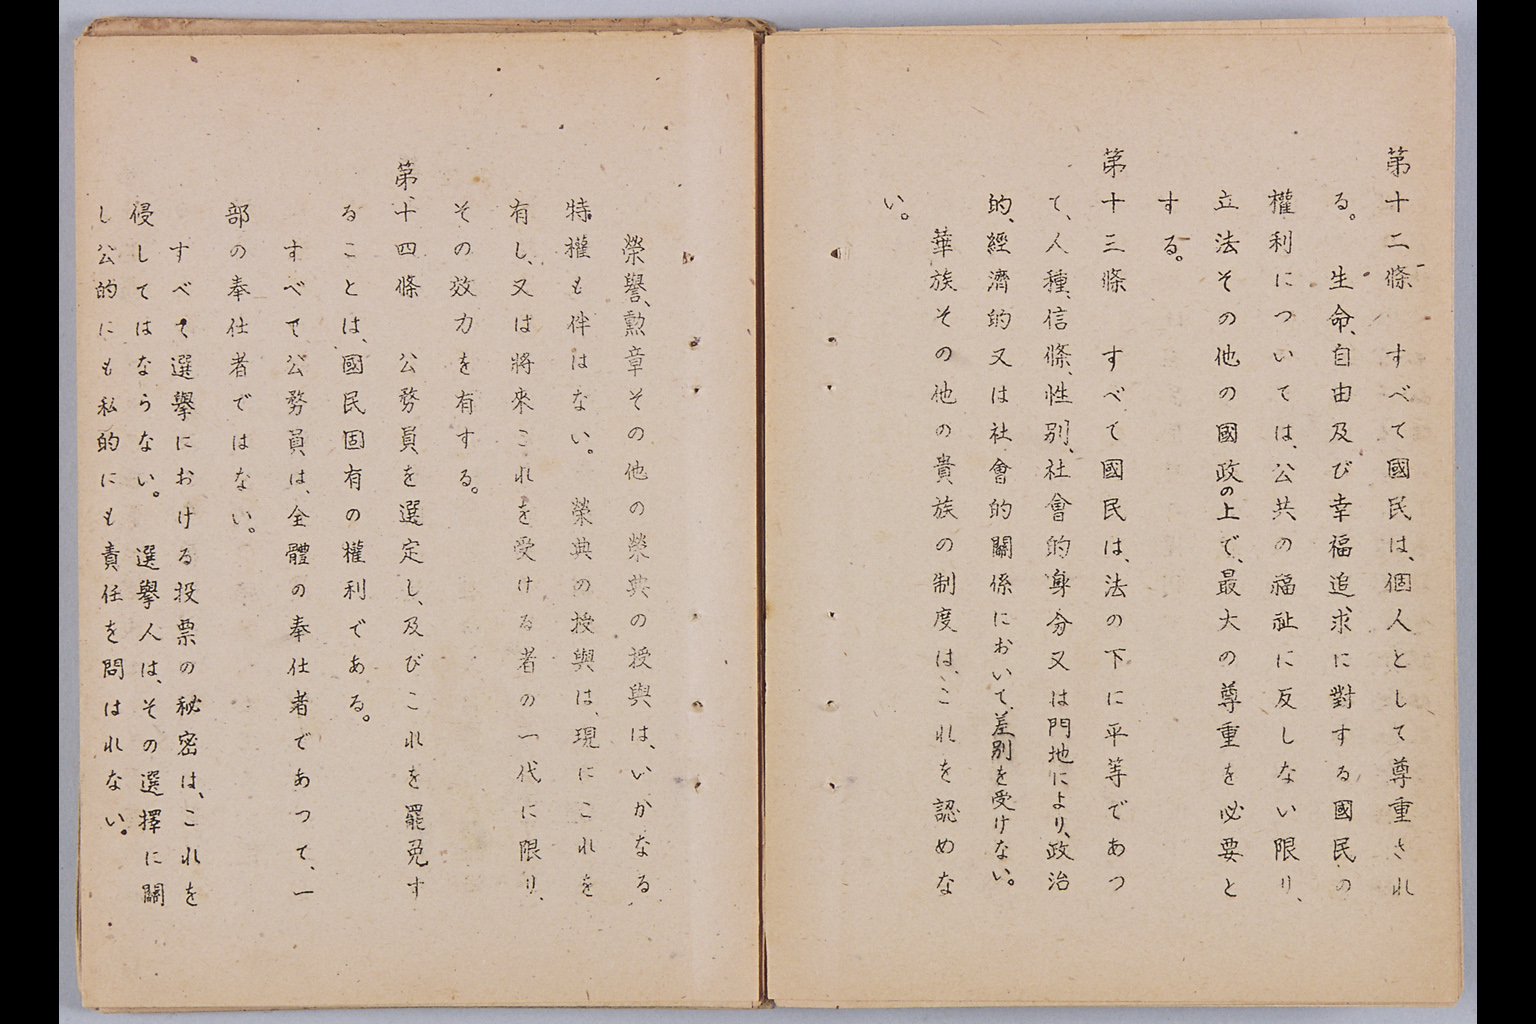 第十二條　すべて國民は、個人として尊重され
る。　生命、自由及び幸福追求に對する國民の
權利については、公共の福祉に反しない限り、
立法その他の國政の上で、最大の尊重を必要と
する。
第十三條　すべて國民は、法の下に平等であつ
て、人種、信條、性別、社會的身分又は門地により、政治
的、經濟的又は社會的關係において、差別を受けない。
華族その他の貴族の制度は、これを認めな
い。
榮譽、勲章その他の榮典の授與は、いかなる
特權も伴はない。　榮典の授與は、現にこれを
有し、又は將來これを受ける者の一代に限り、
その效力を有する。
第十四條　公務員を選定し、及びこれを罷免す
ることは、國民固有の權利である。
すべて公務員は、全體の奉仕者であつて、一
部の奉仕者ではない。
すべて選擧における投票の秘密は、これを
侵してはならない。　選擧人は、その選擇に關
し公的にも私的にも責任を問はれない。